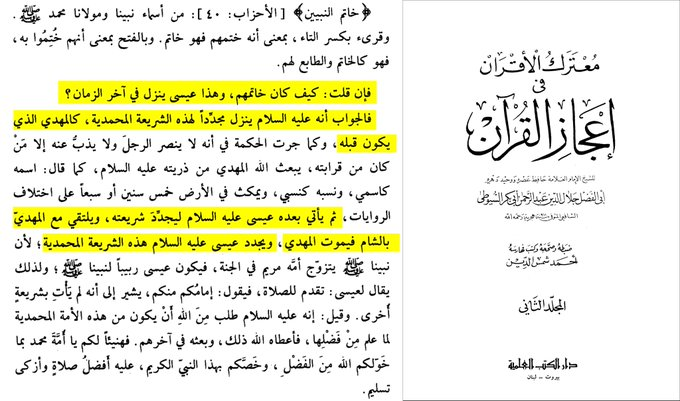 ﴿خاتم النبيين﴾ [الأحزاب: ٤٠]: من أسماء نبينا ومولانا محمد ﷺ.
وقرىء بكسر التاء، بمعنى أنه ختمهم فهو خاتم. وبالفتح بمعنى أنهم خُتِمُوا به،
فهو كالخاتم والطابع لهم.
فإن قلت: كيف كان خاتمهم، وهذا عيسى ينزل في آخر الزمان؟
فالجواب أنه عليه السلام ينزل مجدّداً لهذه الشريعة المحمدية، كالمهدي الذي
يكون قبله، وكما جرت الحكمة في أنه لا ينصر الرجلَ ولا يذبُّ عنه إلا مَنْ
كان من قرابته، يبعث الله المهدي من ذريته عليه السلام، كما قال: اسمه
كاسمي، ونسبه كنسبي، ويمكث في الأرض خمس سنين أو سبعاً على اختلاف
الروايات، ثم يأتي بعده عيسى عليه السلام ليجدّدَ شريعته، ويلتقي مع المهديّ
بالشام فيموت المهدي، ويجدد عيسى عليه السلام هذه الشريعة المحمدية؛ لأن
نبينا ﷺ يتزوّج أمَّه مريم في الجنة، فيكون عيسى ربيباً لنبينا ﷺ؛ ولذلك
يقال لعيسى: تقدم للصلاة، فيقول: إمامُكم منكم، يشير إلى أنه لم يَأْتِ بشريعةٍ
أخرى. وقيل: إنه عليه السلام طلب مِنَ اللهِ أَنْ يكون من هذه الأمة المحمدية
لما علم مِنْ فَضْلِها، فأعطاه الله ذلك، وبعثه في آخرهم. فهنيئاً لكم يا أُمَّةَ محمد بما
خَوّلكم الله مِنَ الفَضْلِ، وخَصَّكم بهذا النبيّ الكريم، عليه أفضلُ صلاةٍ وأزكى
تسليم.
معترك الأقران
في
إعجاز القرآن
للشيخ الإمام العلامة حافظ عصره ووحيد دهره
أبي الفضل جلال الدين عبد الرحمن أبي بكر السيوطي
ضبطه وصححه وكتب فهارسه
أحمد شمس الدين
المجلد الثاني
دار الكتب العلمية
بيروت - لبنان